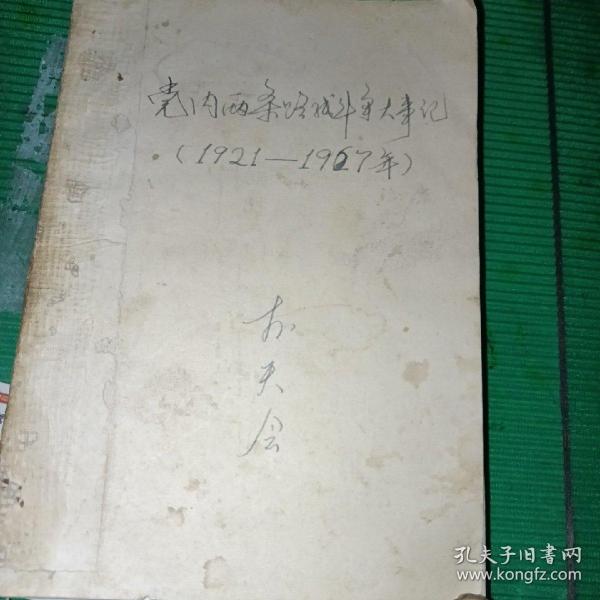 党内两条路线斗争大事记
(1921—1967年)
天
会
孔夫子旧书网
www.kongfz.com